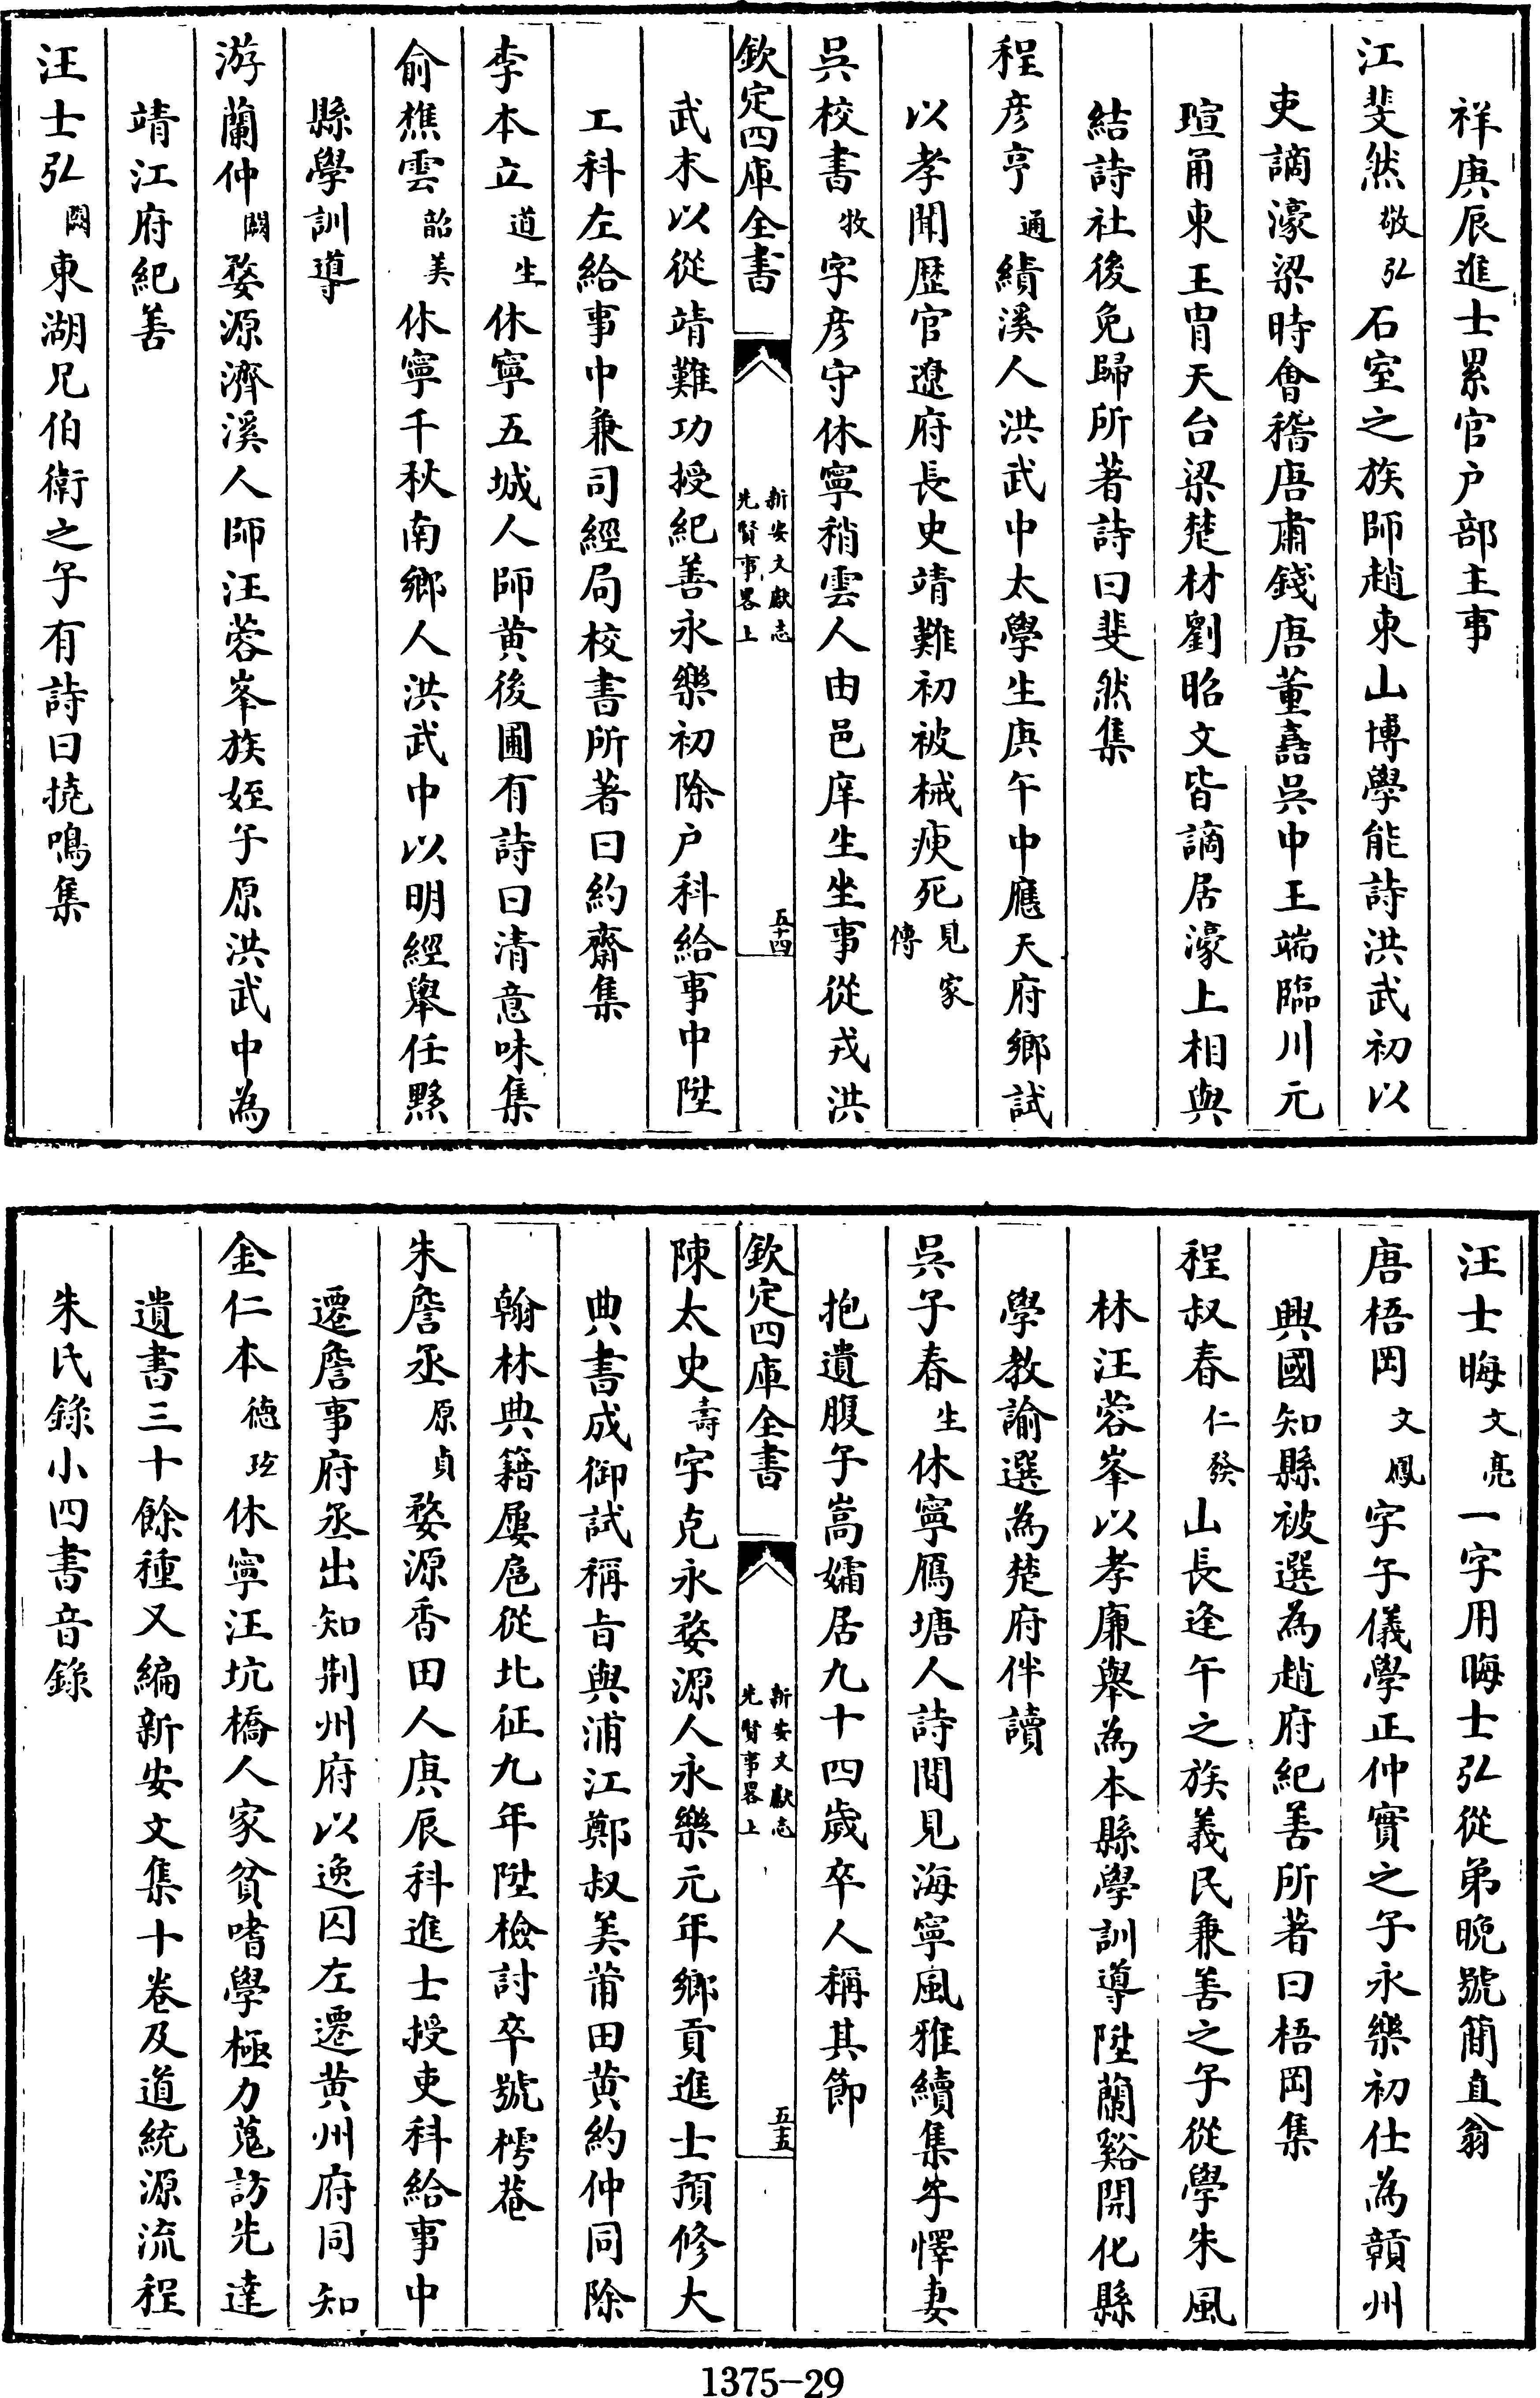 祥庚辰進士累官户部主事
江斐然敬弘石室之族師趙東山博學能詩洪武初以
吏謫濠梁時會稽唐肅錢唐董嚞吳中王端臨川元
瑄甬東王胄天台梁楚材劉昭文皆謫居濠上相與
結詩社後免歸所著詩曰斐然集
程彦亨通績溪人洪武中太學生庚午中應天府鄉試
以孝聞歴官遼府長史靖難初被械瘐死見家傳
吳校書牧字彦守休寧稍雲人由邑庠生坐事從戎洪
欽定四庫全書
新安文獻志
先賢事畧上
五十四
武末以從靖難功授紀善永樂初除户科給事中陞
工科左給事中兼司經局校書所著曰約齋集
李本立道生休寧五城人師黄後圃有詩曰清意味集
俞樵雲韶美休寧千秋南鄉人洪武中以明經舉任黟
縣學訓導
游蘭仲闕婺源濟溪人師汪蓉峯族姪子原洪武中為
靖江府紀善
汪士弘闕東湖兄伯衛之子有詩曰撓鳴集
汪士晦文亮一字用晦士弘從弟晚號簡直翁
唐梧岡文鳳字子儀學正仲實之子永樂初仕為贛州
興國知縣被選為趙府紀善所著曰梧岡集
程叔春仁發山長逢午之族義民兼善之子從學朱風
林汪蓉峯以孝亷舉為本縣學訓導陞蘭谿開化縣
學教諭選為楚府伴讀
吳子春生休寧鴈塘人詩間見海寧風雅續集子懌妻
抱遺腹子嵩孀居九十四歲卒人稱其節
欽定四庫全書
新安文獻志
先賢事畧上
五十五
陳太史壽字克永婺源人永樂元年鄉貢進士預修大
典書成御試稱旨與浦江鄭叔美莆田黄約仲同除
翰林典籍屢扈從北征九年陞檢討卒號樗菴
朱詹丞原貞婺源香田人庚辰科進士授吏科給事中
遷詹事府丞出知荆州府以逸囚左遷黄州府同知
金仁本德玹休寧汪坑橋人家貧嗜學極力蒐訪先達
遺書三十餘種又編新安文集十卷及道統源流程
朱氏錄小四書音錄
1375-29